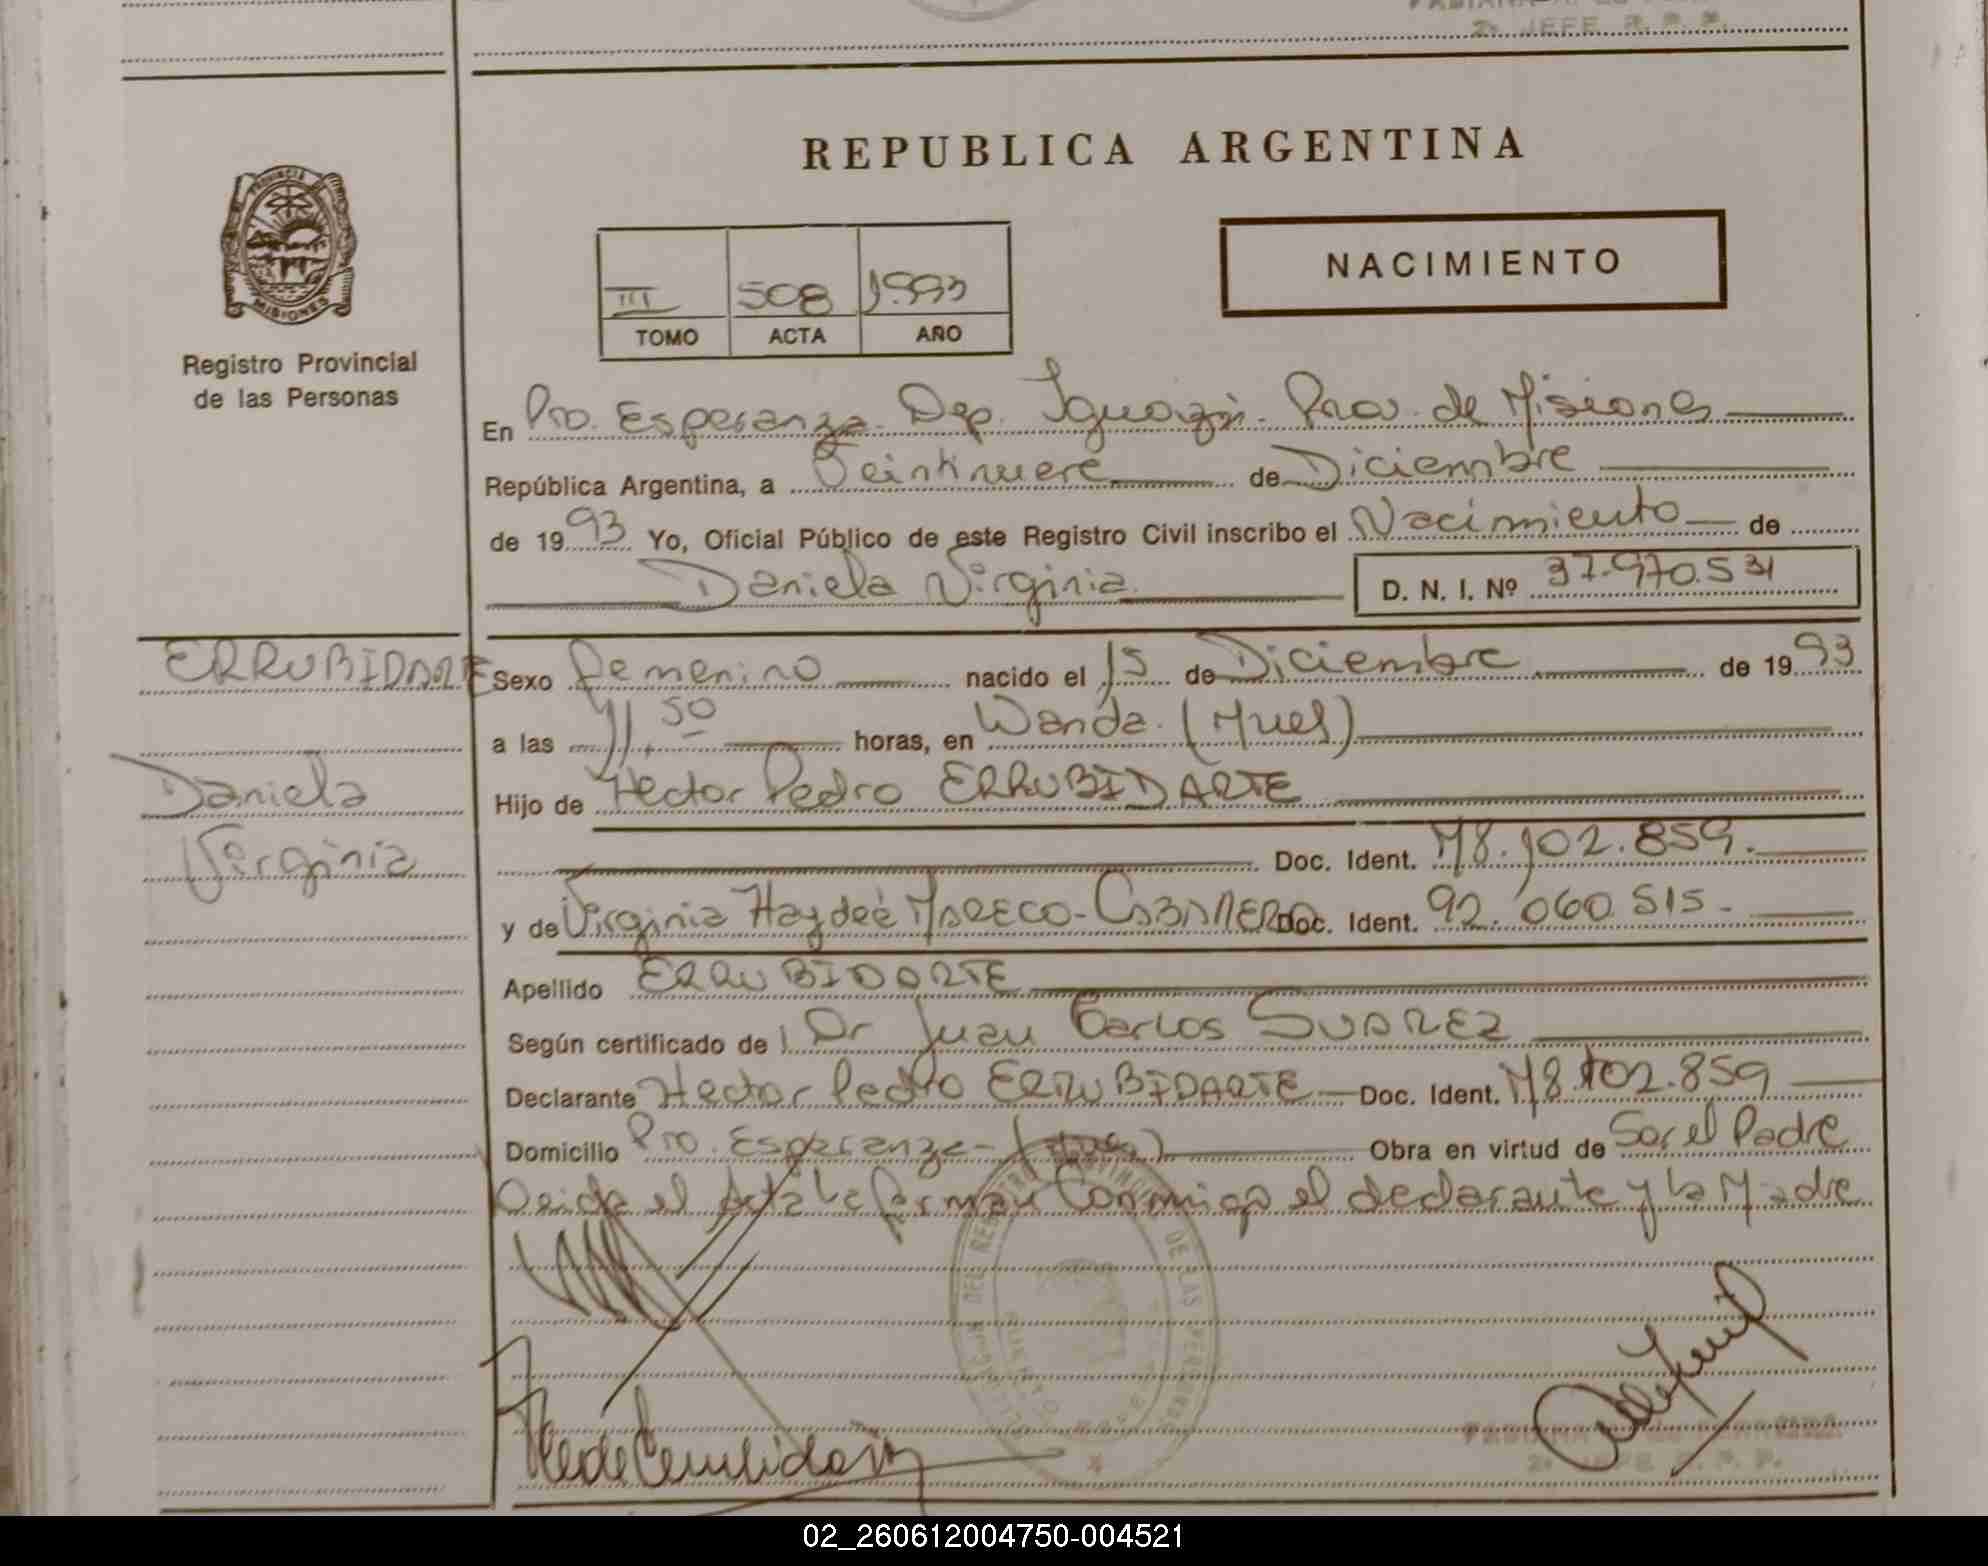 2º JEFE R. P. P.
REPUBLICA ARGENTINA
PROVINCIA
MISIONES
Registro Provincial
de las Personas
III 508 1993
TOMO ACTA AÑO
NACIMIENTO
En Pto. Esperanza. Dep. Iguazú. Prov. de Misiones
República Argentina, a Veintinueve de Diciembre
de 1993 Yo, Oficial Público de este Registro Civil inscribo el Nacimiento de
Daniela Virginia D. N. I. Nº 37.970.531
ERRUBIDARTE
Daniela
Virginia
Sexo femenino nacido el 15 de Diciembre de 1993
a las 11,50 horas, en Wanda. (Mnes)
Hijo de Hector Pedro ERRUBIDARTE
Doc. Ident. M8.102.859.
y de Virginia Haydeé MARECO - Doc. Ident. 92.060.515-
Apellido ERRUBIDARTE
Según certificado de Dr Juan Carlos SUAREZ
Declarante Hector Pedro ERRUBIDARTE Doc. Ident. M8.102.859
Domicilio Pto. Esperanza - Obra en virtud de Ser el Padre
Leida el Acta la firman Conmigo el declarante y la Madre
DEL REGISTRO PROVINCIAL DE LAS PERSONAS
2º JEFE R. P. P.
02_260612004750-004521